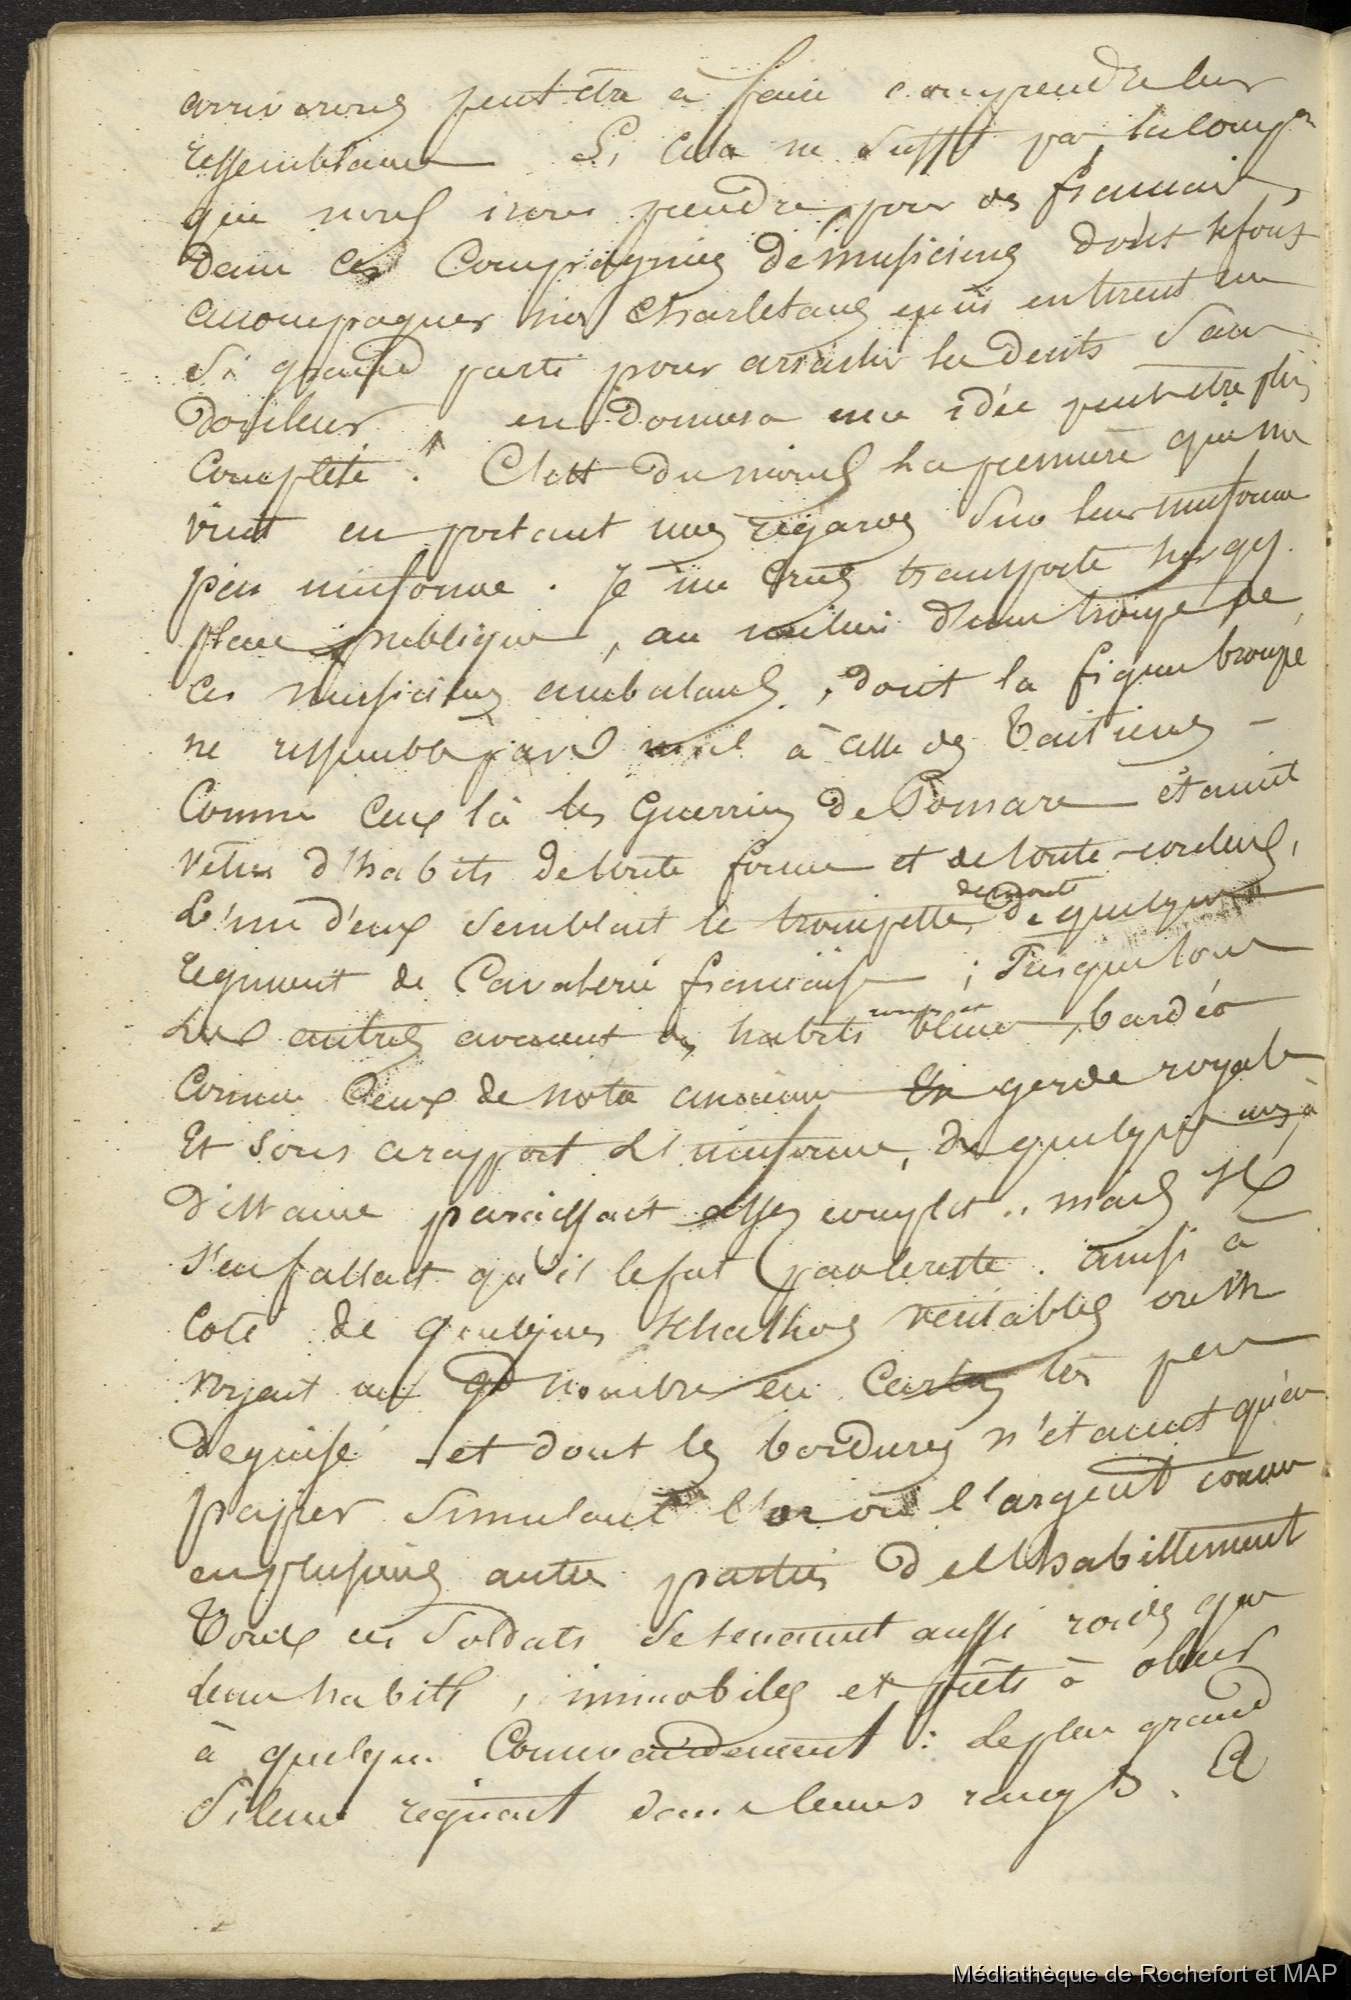 arriverons peut etre à faire comprendre leur
ressemblance Si cela ne suffit pas la comp^on
que nous irons prendre, pour des francais,
dans ces Compagnies de musiciens dont se font
accompagner nos charletans qui en tirent un
si grand parti pour arracher les dents sans
douleur, en donnera une idée peut etre plus
complete. C'est du moins la premiere qui me
vint en portant mes regards sur leur uniforme
peu uniforme. Je me crus transporté sur
place publique, au milieu d'une troupe de
ces musiciens ambulans, dont la figure
ne ressemble pas mal à celle des Taitiens -
Comme ceux là les Guerriers de Pomare étaient
vetus d'habits de toute forme et de toute couleurs,
L'un d'eux semblait le trompette demonté de quelque
regiment de Cavalerie francaise ; Presque tous
les autres avaient des habits bleus, bardés
comme ceux de notre ancienne garde royale
Et sous ce rapport l'uniforme, de quelques uns, à
distance paraissait assez complet.. mais il
s'en fallait qu'il le fut
coté de quelques véritables on en
voyait un g^d nombre en
deguisé et dont les bordures n'étaient qu'en
papier simulant l'or ou l'argent comme
en plusieurs autres parties de l'habillement
Tous ces soldats se tenaient aussi roides que
leurs habits, immobiles et prêts à obeir
à quelque Commandement : le plus grand
silence regnait dans leurs rangs. A
Médiathèque de Rochefort et MAP